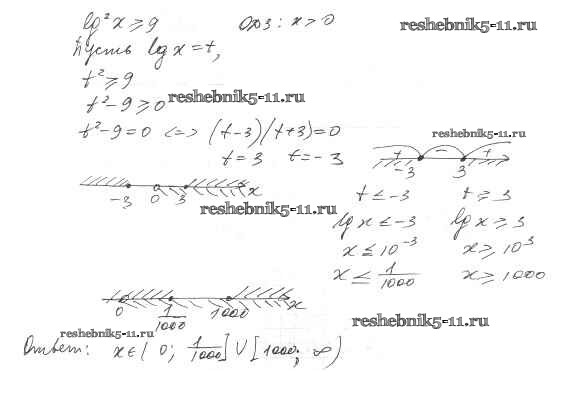 lg²x ≥ 9   ОДЗ: x > 0   reshebnik5-11.ru
Пусть lg x = t,
t² ≥ 9
t² - 9 ≥ 0   reshebnik5-11.ru
t² - 9 = 0 <=> (t-3)(t+3) = 0   reshebnik5-11.ru
t = 3   t = -3   + - +
-3   3
-3   0   3   x   t ≤ -3   t ≥ 3
reshebnik5-11.ru
lg x ≤ -3   lg x ≥ 3
x ≤ 10⁻³   x ≥ 10³
x ≤ 1/1000   x ≥ 1000
0   1/1000   1000   x
reshebnik5-11.ru   reshebnik5-11.ru
Ответ: x ∈ (0; 1/1000] ∪ [1000; ∞)